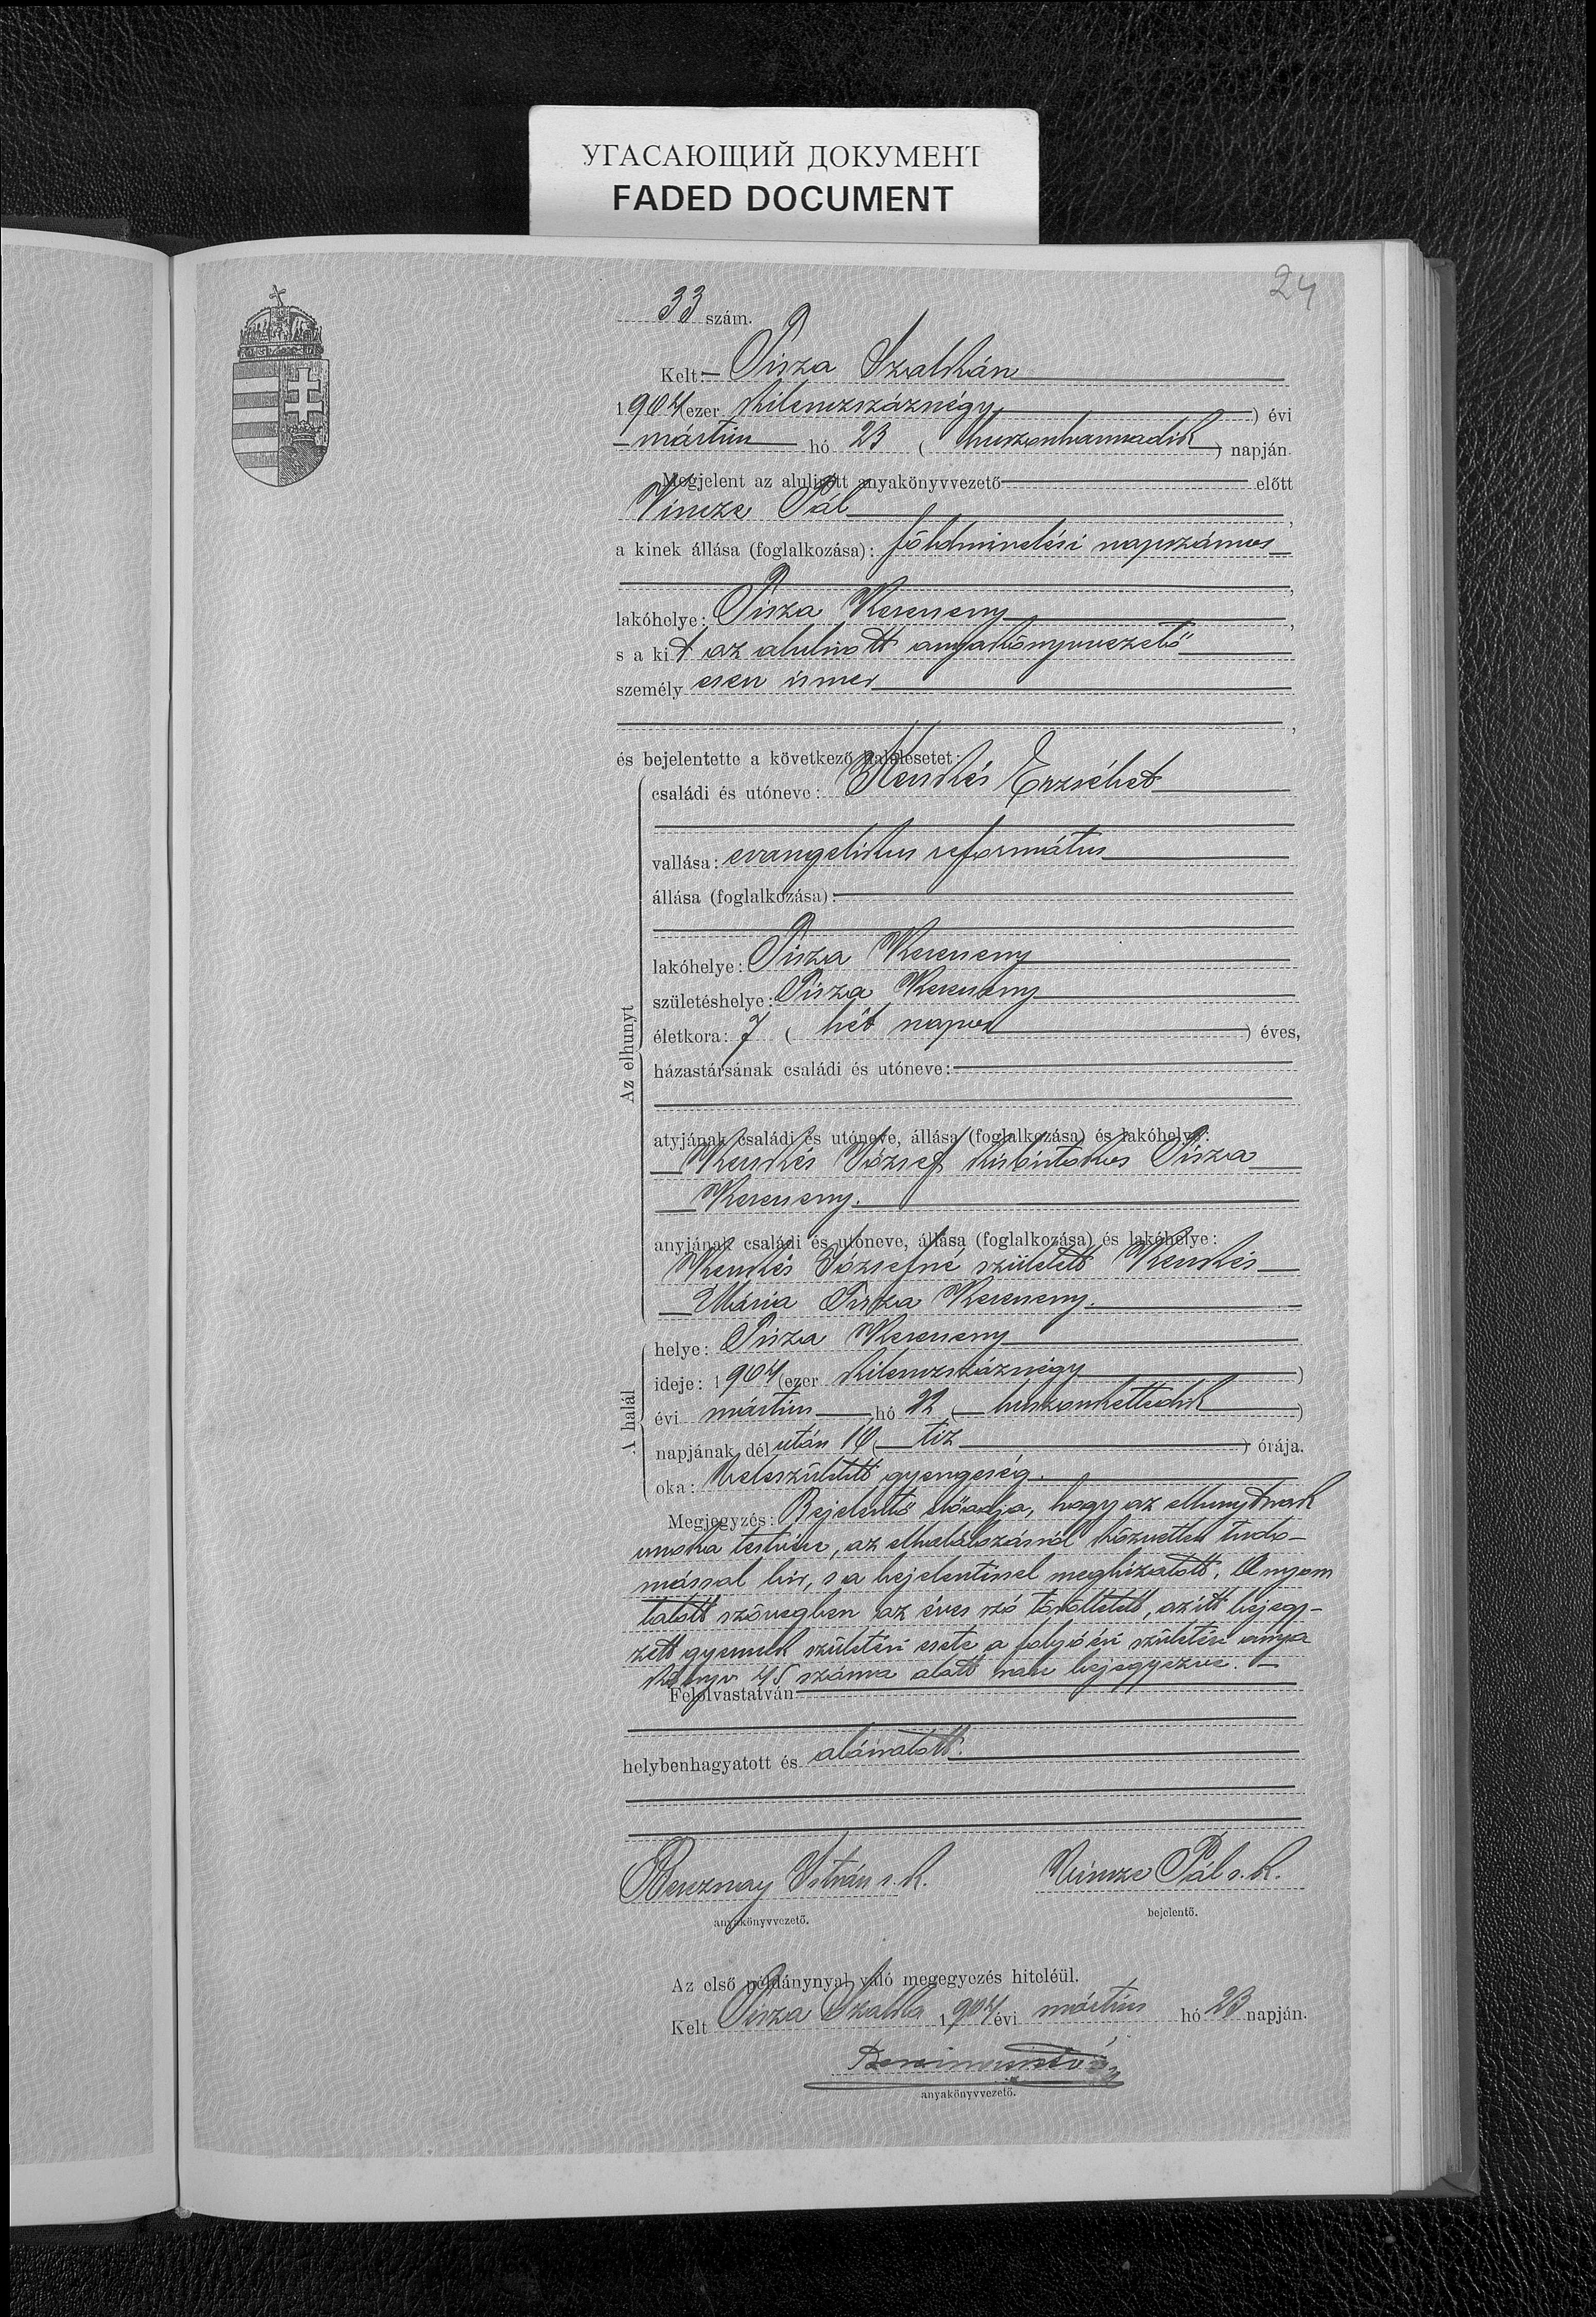 УГАСАЮЩИЙ ДОКУМЕНТ
FADED DOCUMENT
24
33 szám.
Kelt:— Tisza Szalkán
1904 (ezer kilenczszáznégy) évi
mártius hó 23 (huszonharmadik) napján.
Megjelent az alulirott anyakönyvvezető előtt
Vincze Pál,
a kinek állása (foglalkozása): földmivelési napszámos
,
lakóhelye: Tisza Kerecseny,
s a kit az alulirott anyakönyvvezető
személyesen ismer
,
és bejelentette a következő halálesetet:
Az elhunyt
családi és utóneve: Kenskés Erzsébet
vallása: evangelikus református
állása (foglalkozása):
lakóhelye: Tisza Kerecseny
születéshelye: Tisza Kerecseny
életkora: 7 (hét napos) éves,
házastársának családi és utóneve:
atyjának családi és utóneve, állása (foglalkozása) és lakóhelye:
Kenskés József kisbirtokos Tisza
Kerecseny.
anyjának családi és utóneve, állása (foglalkozása) és lakóhelye:
Kenskés Józsefné született Kenskés
Mária Tisza Kerecseny.
A halál
helye: Tisza Kerecseny
ideje: 1904 (ezer kilenczszáznégy)
évi mártius hó 22 (huszonkettedik)
napjának dél után 10 (tiz) órája.
oka: Veleszületett gyengeség.
Megjegyzés: Bejelentő előadja, hogy az elhunytnak
unoka testvére, az elhalálozásról közvetlen tudo-
mással bir, s a bejelentéssel megbizatott. A nyom
tatott szövegben az éves szó töröltetett, az itt bejegy-
zett gyermek születési esete a folyó évi születési anya
könyv 45 száma alatt van bejegyezve. —
Felolvastatván
helybenhagyatott és aláiratott.
Bereznay István s. k.
anyakönyvvezető.
Vincze Pál s. k.
bejelentő.
Az első példánynyal való megegyezés hiteléül.
Kelt Tisza Szalka 1904 évi mártius hó 23 napján.
anyakönyvvezető.